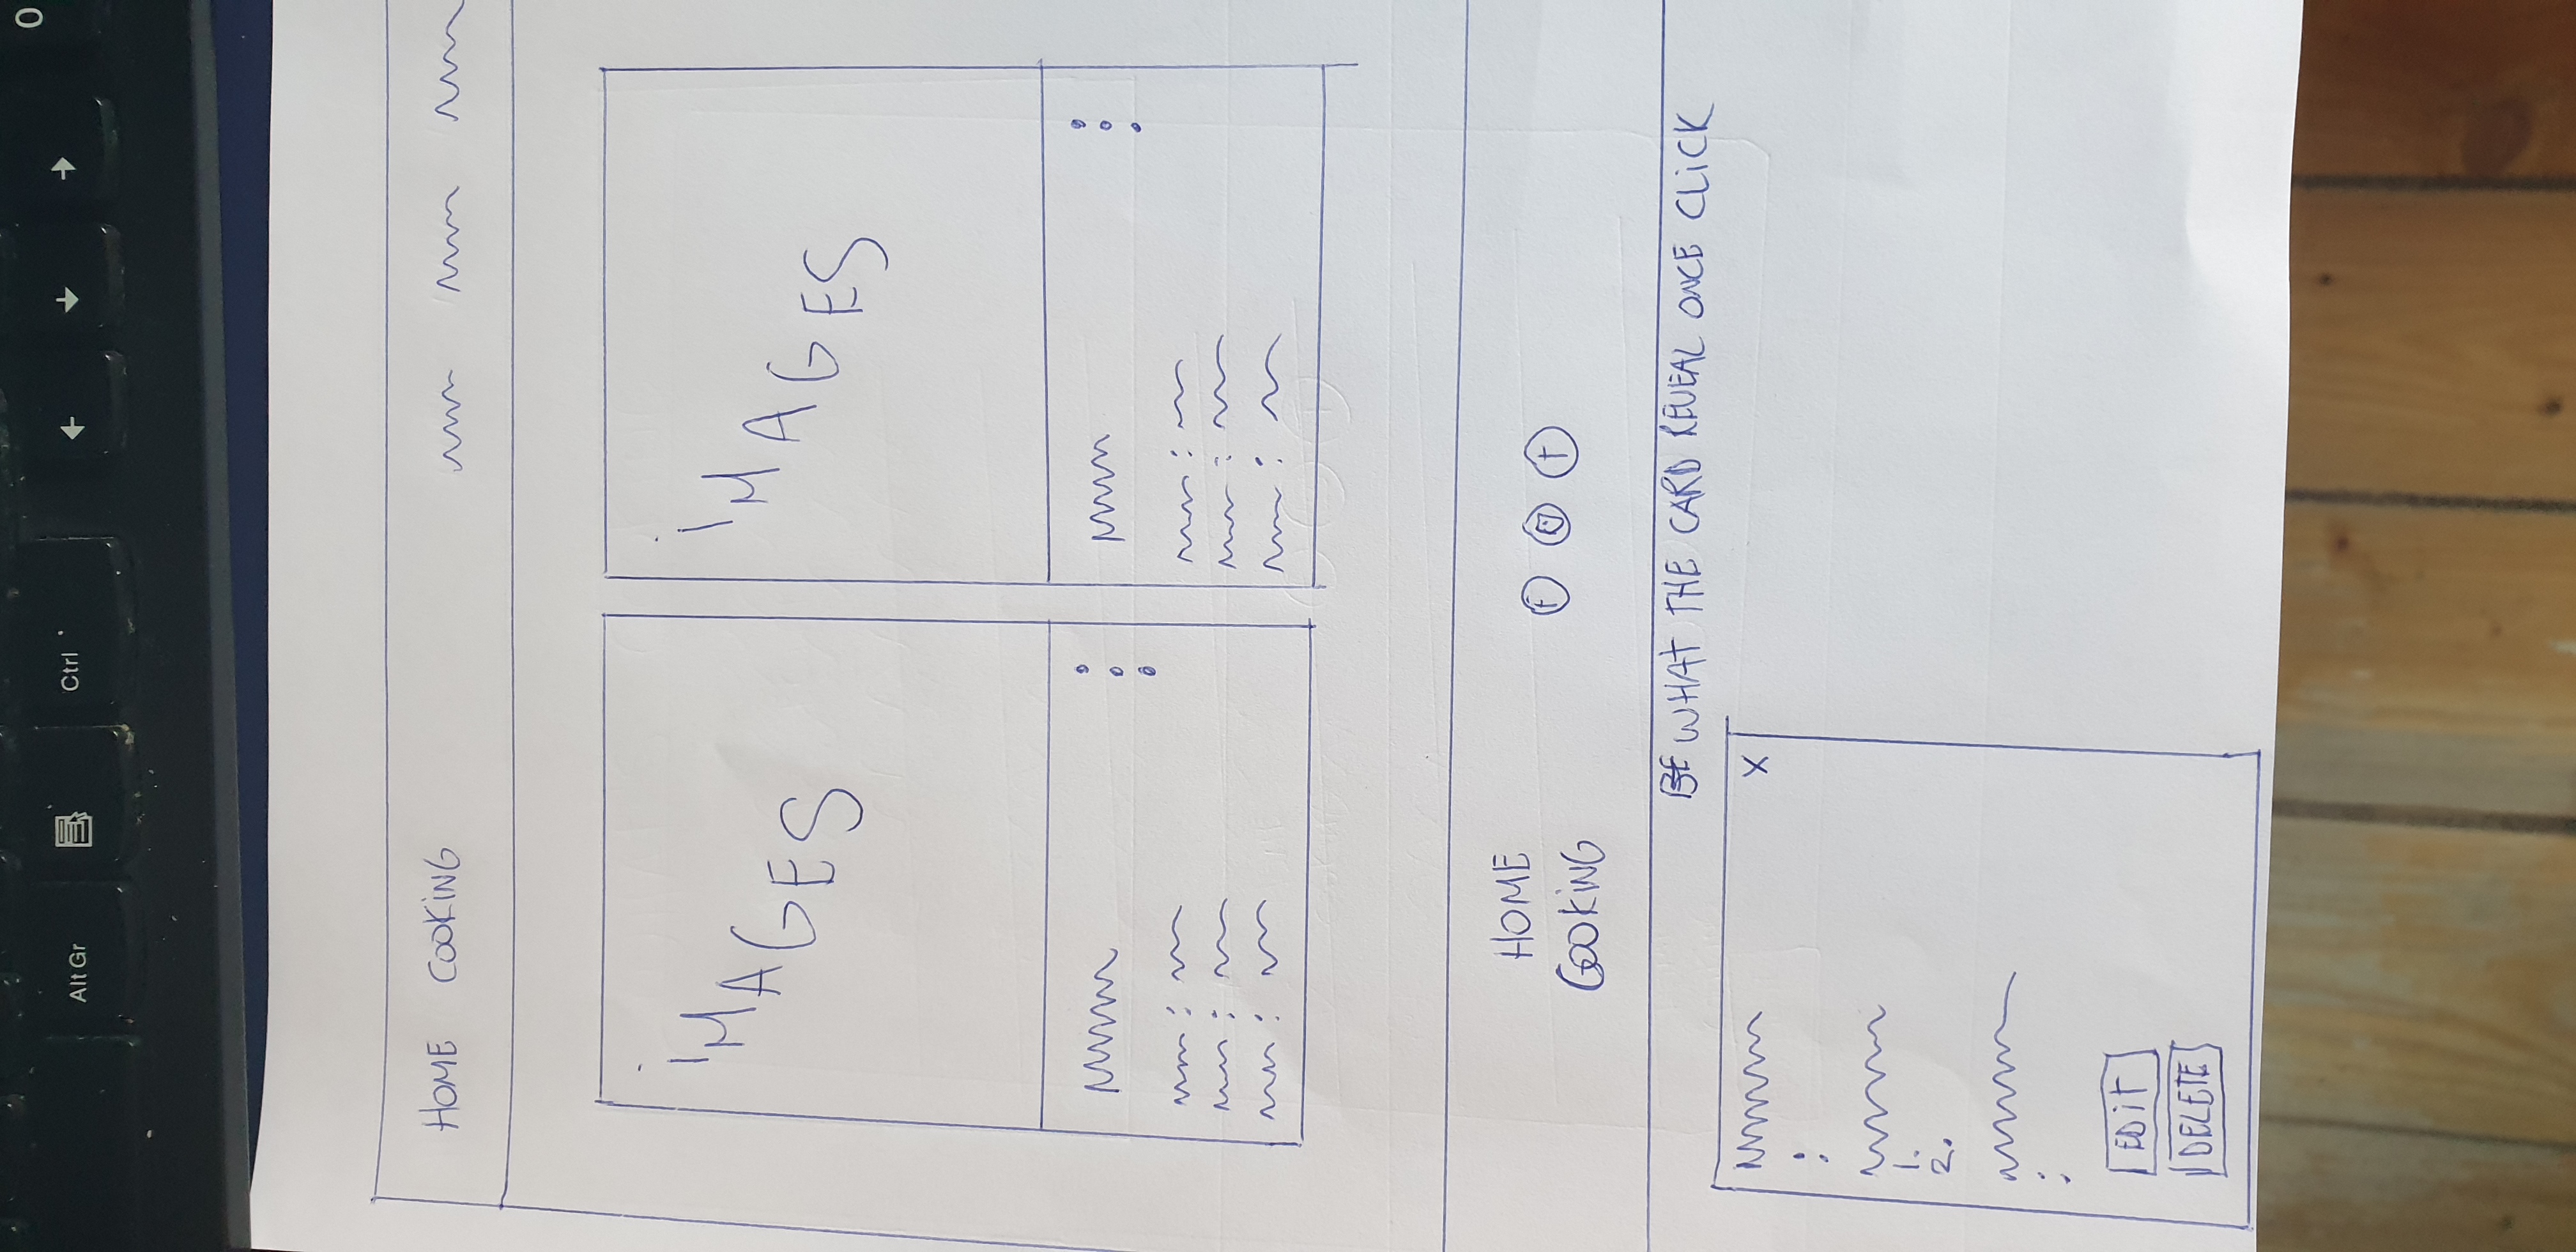 Alt Gr
Ctrl
0
HOME COOKING
iMAGES
iMAGES
HOME
COOKING
WHAT THE CARD REVEAL ONCE CLiCK
X
:
1.
2.
:
EDiT
DELETE